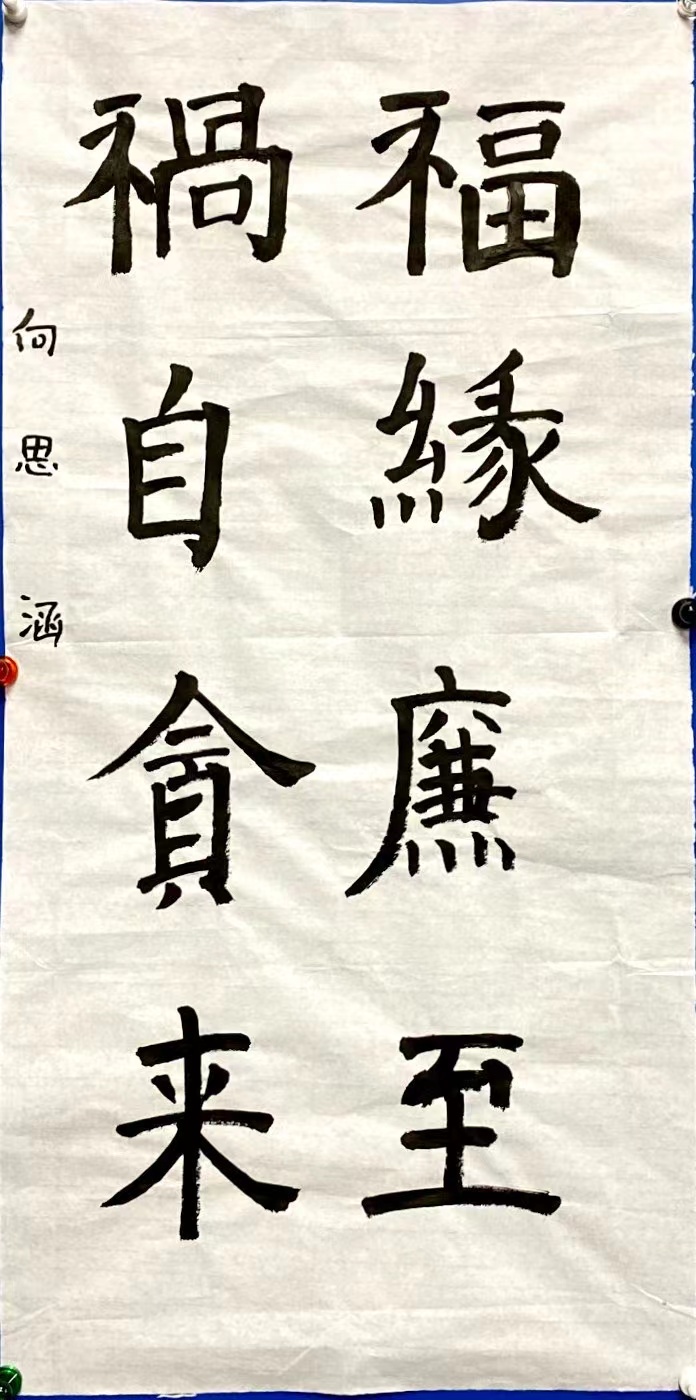 福緣廉至
禍自貪来
向思涵